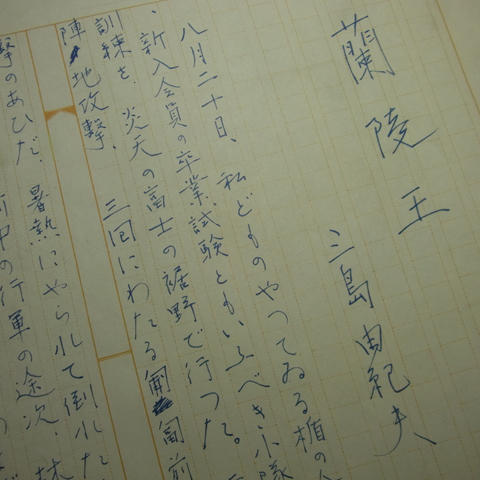 蘭陵王
三島由紀夫
八月二十日、私どものやつてゐる楯の
、新入会員の卒業試験ともいふべき小隊
訓練を、炎天の富士の裾野で行つた。
陣地攻撃、三回にわたる匍匐前
撃のあひだ、暑熱にやられて倒れた
中の行軍の途次、